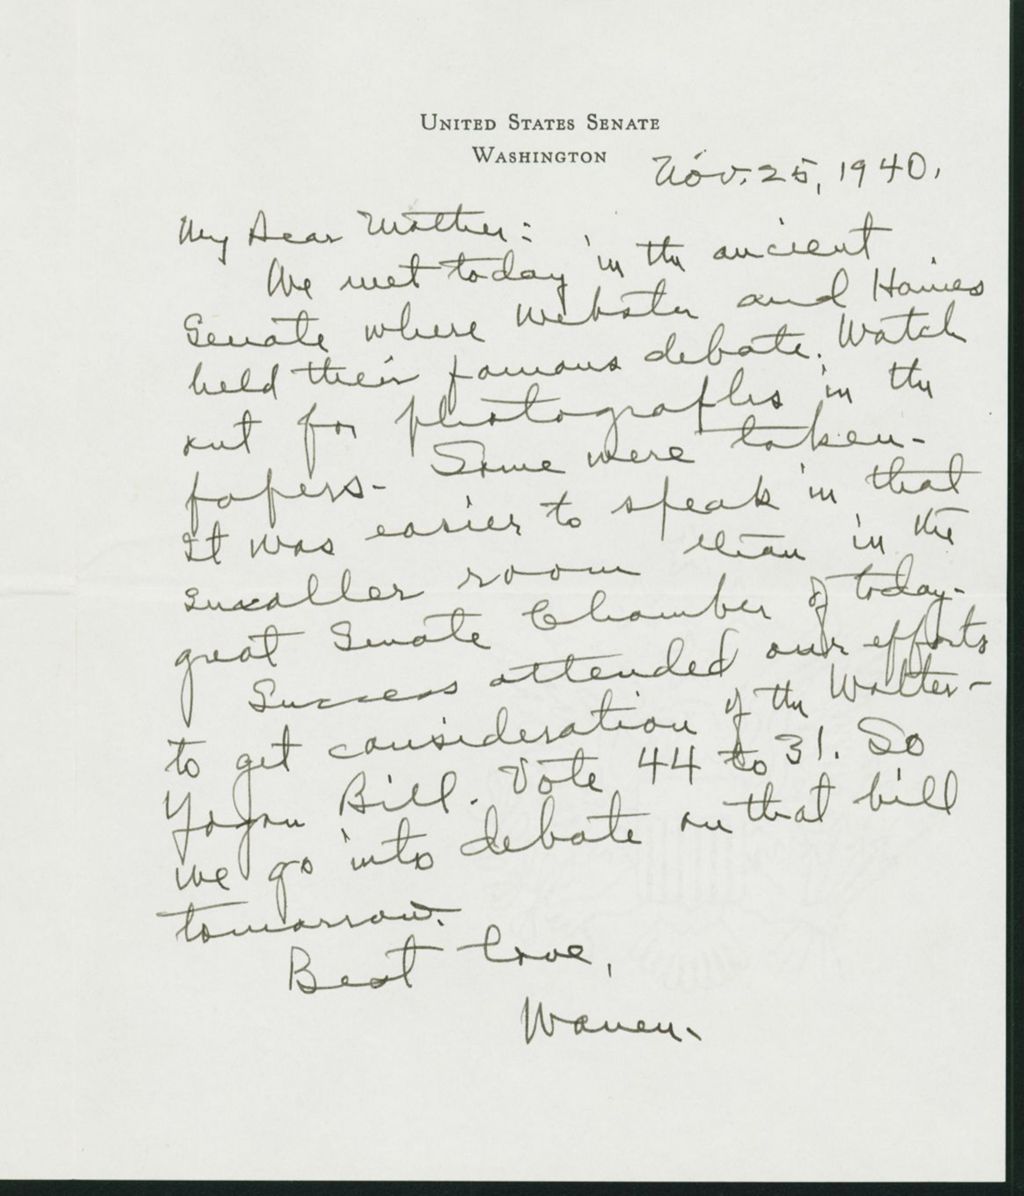 UNITED STATES SENATE
WASHINGTON
Nov. 25, 1940.
My Dear Mother:
We met today in the ancient
Senate where Webster and Haines
held their famous debate. Watch
out for photographs in the
papers- Some were taken-
It was easier to speak in that
smaller room than in the
great Senate Chamber of today-
Success attended our efforts
to get consideration of the Walter-
Logan Bill. Vote 44 to 31. So
we go into debate on that bill
tomorrow.
Best love,
Warren.